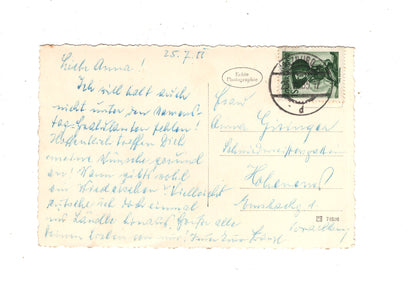 25.7.55
Liebe Anna!
Ich will halt auch
nicht unter den Namens-
tag-Gratulanten fehlen!
Hoffentlich treffen Dich
meine Wünsche gesund
an! Wann gibts wohl
ein Wiedersehen? Vielleicht
rutsche ich doch einmal
ins Ländle hinaus. Grüße alle
Deinen Lieben von mir!
Echte
Photographie
Frau
Anna
Hohenems
Vorarlberg